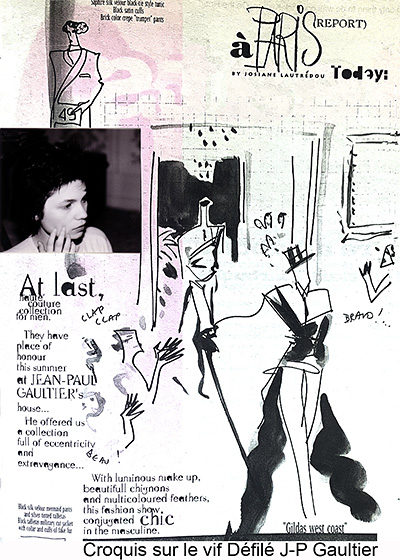 saphire silk velour black tie style tunic
Black satin cuffs
Brick color crepe "trumpet" pants
49
à PARIS (REPORT)
BY JOSIANE LAUTRÉDOU
Today:
At last,
haute
couture
collection
for men.
CLAP
CLAP
BRAVO!
They have
place of
honour
this summer
at JEAN-PAUL
GAULTIER's
house...
He offered us
a collection
full of eccentricity
and
extravagance...
BEAU!
With luminous make up,
beautifull chignons
and multicoloured feathers,
this fashion show,
conjugated chic
in the masculine.
Black silk velour mermaid pants
"Gildas west coast"
Croquis sur le vif Défilé J-P Gaultier